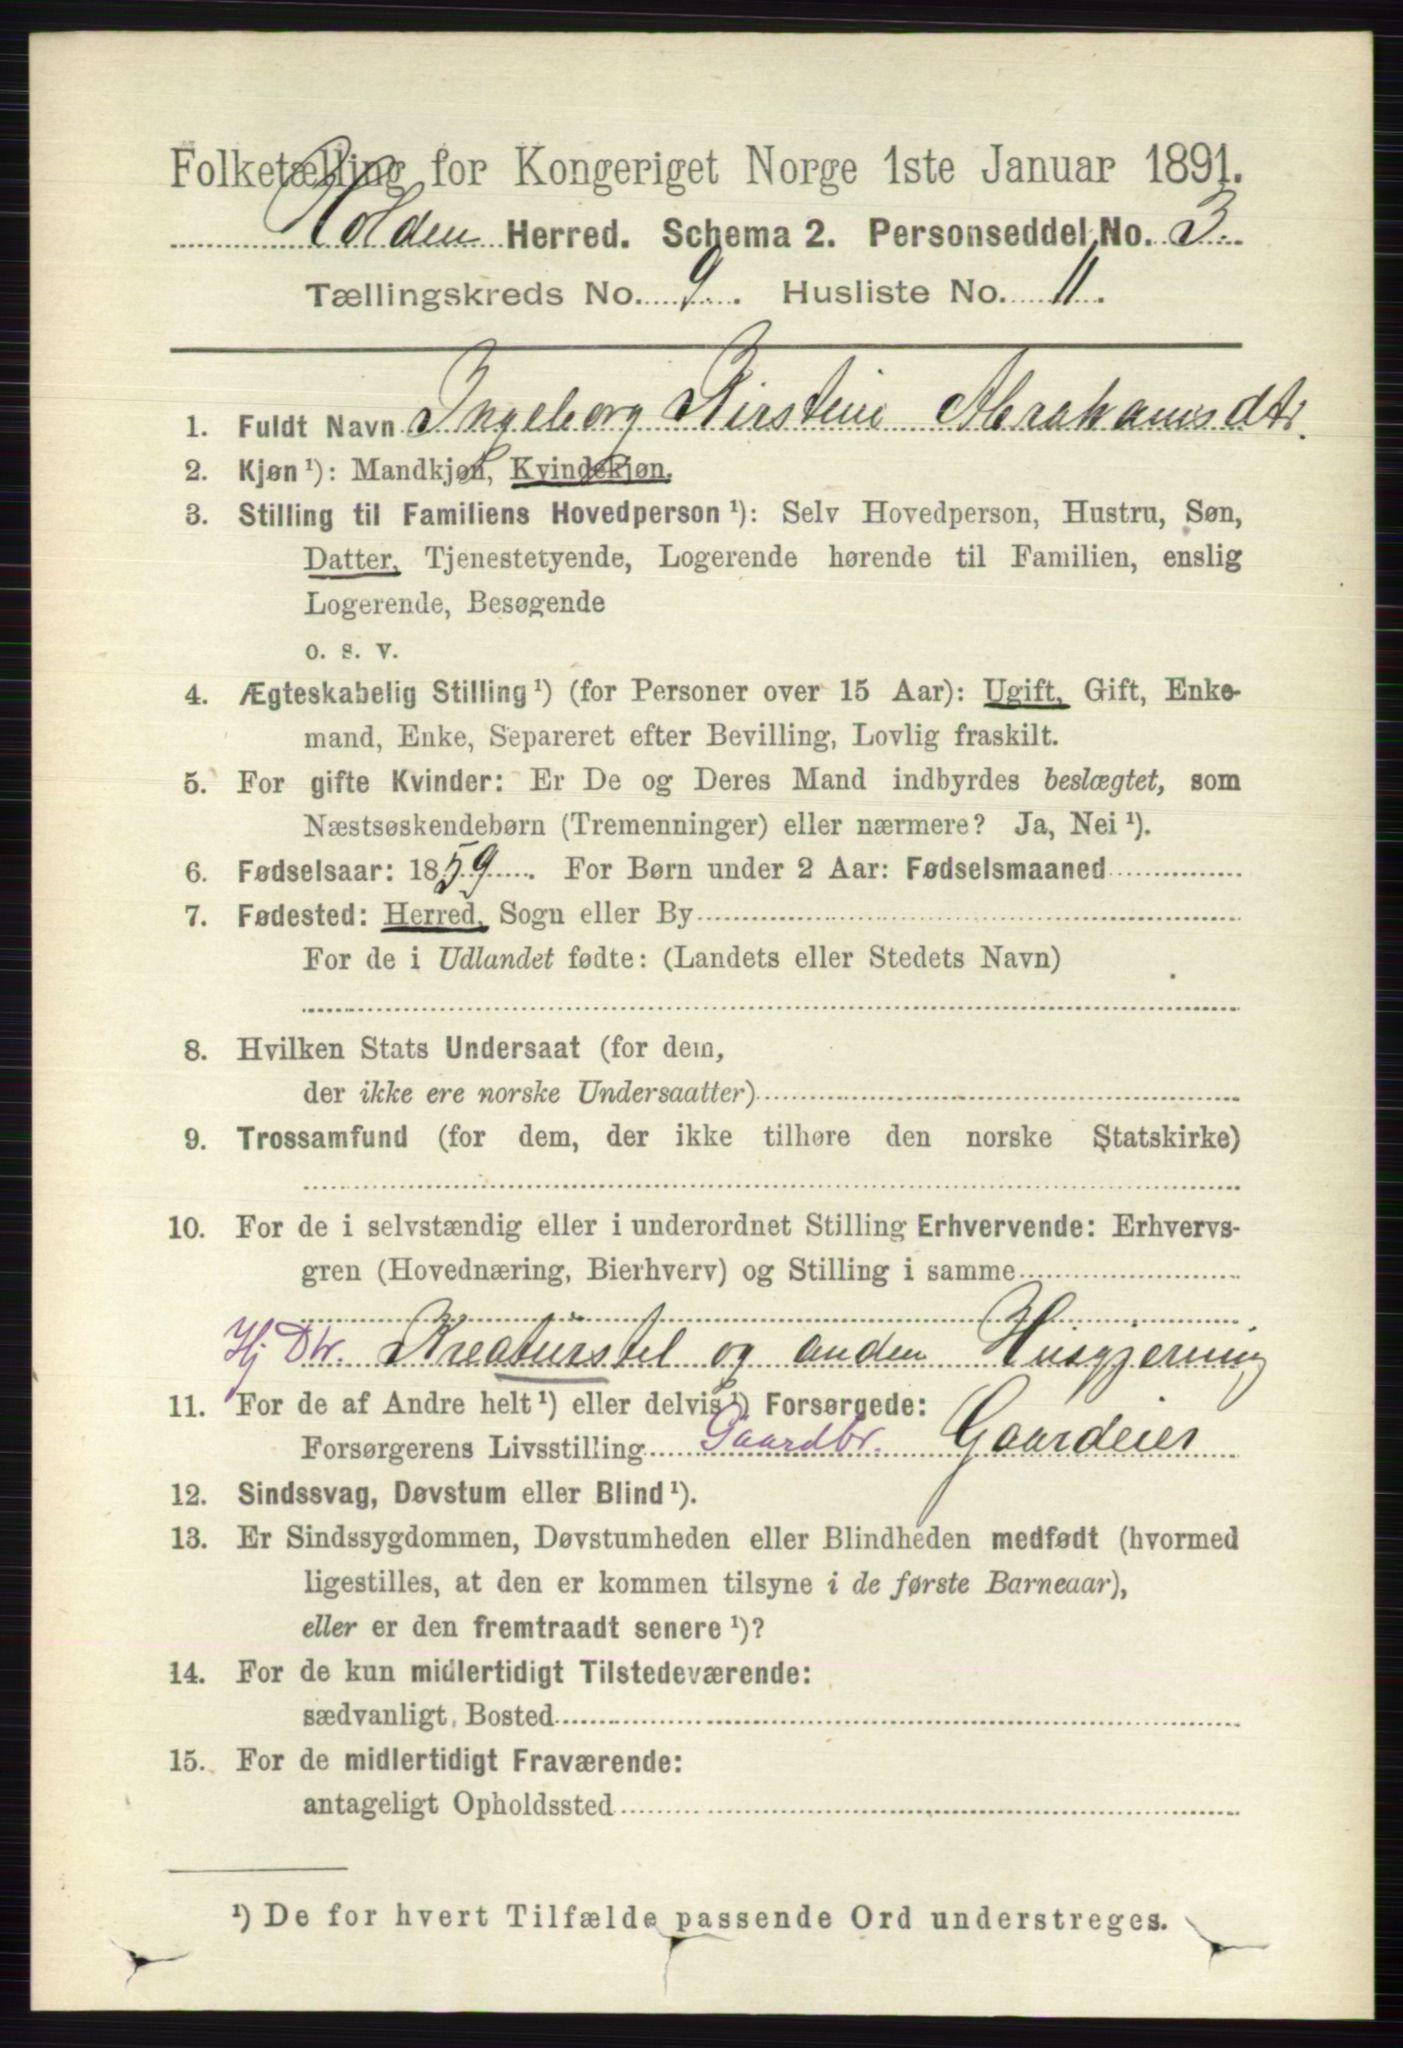 Folketælling for Kongeriget Norge 1ste Januar 1891.
Holden Herred. Schema 2. Personseddel No. 3.
Tællingskreds No. 9. Husliste No. 11.
1. Fuldt Navn Ingeborg Kirstine Abrahamsdtr.
2. Kjøn¹): Mandkjøn, Kvindekjøn.
3. Stilling til Familiens Hovedperson¹): Selv Hovedperson, Hustru, Søn,
Datter, Tjenestetyende, Logerende hørende til Familien, enslig
Logerende, Besøgende
o. s. v.
4. Ægteskabelig Stilling¹) (for Personer over 15 Aar): Ugift, Gift, Enke-
mand, Enke, Separeret efter Bevilling, Lovlig fraskilt.
5. For gifte Kvinder: Er De og Deres Mand indbyrdes beslægtet, som
Næstsøskendebørn (Tremenninger) eller nærmere? Ja, Nei¹).
6. Fødselsaar: 1859. For Børn under 2 Aar: Fødselsmaaned
7. Fødested: Herred, Sogn eller By
For de i Udlandet fødte: (Landets eller Stedets Navn)
8. Hvilken Stats Undersaat (for dem,
der ikke ere norske Undersaatter)
9. Trossamfund (for dem, der ikke tilhøre den norske Statskirke)
10. For de i selvstændig eller i underordnet Stilling Erhvervende: Erhvervs-
gren (Hovednæring, Bierhverv) og Stilling i samme
Hj Dtr. Kreaturstel og anden Husgjerning
11. For de af Andre helt¹) eller delvis¹) Forsørgede:
Forsørgerens Livsstilling Gaardbr. Gaardeier
12. Sindssvag, Døvstum eller Blind¹).
13. Er Sindssygdommen, Døvstumheden eller Blindheden medfødt (hvormed
ligestilles, at den er kommen tilsyne i de første Barneaar),
eller er den fremtraadt senere¹)?
14. For de kun midlertidigt Tilstedeværende:
sædvanligt Bosted
15. For de midlertidigt Fraværende:
antageligt Opholdssted
¹) De for hvert Tilfælde passende Ord understreges.